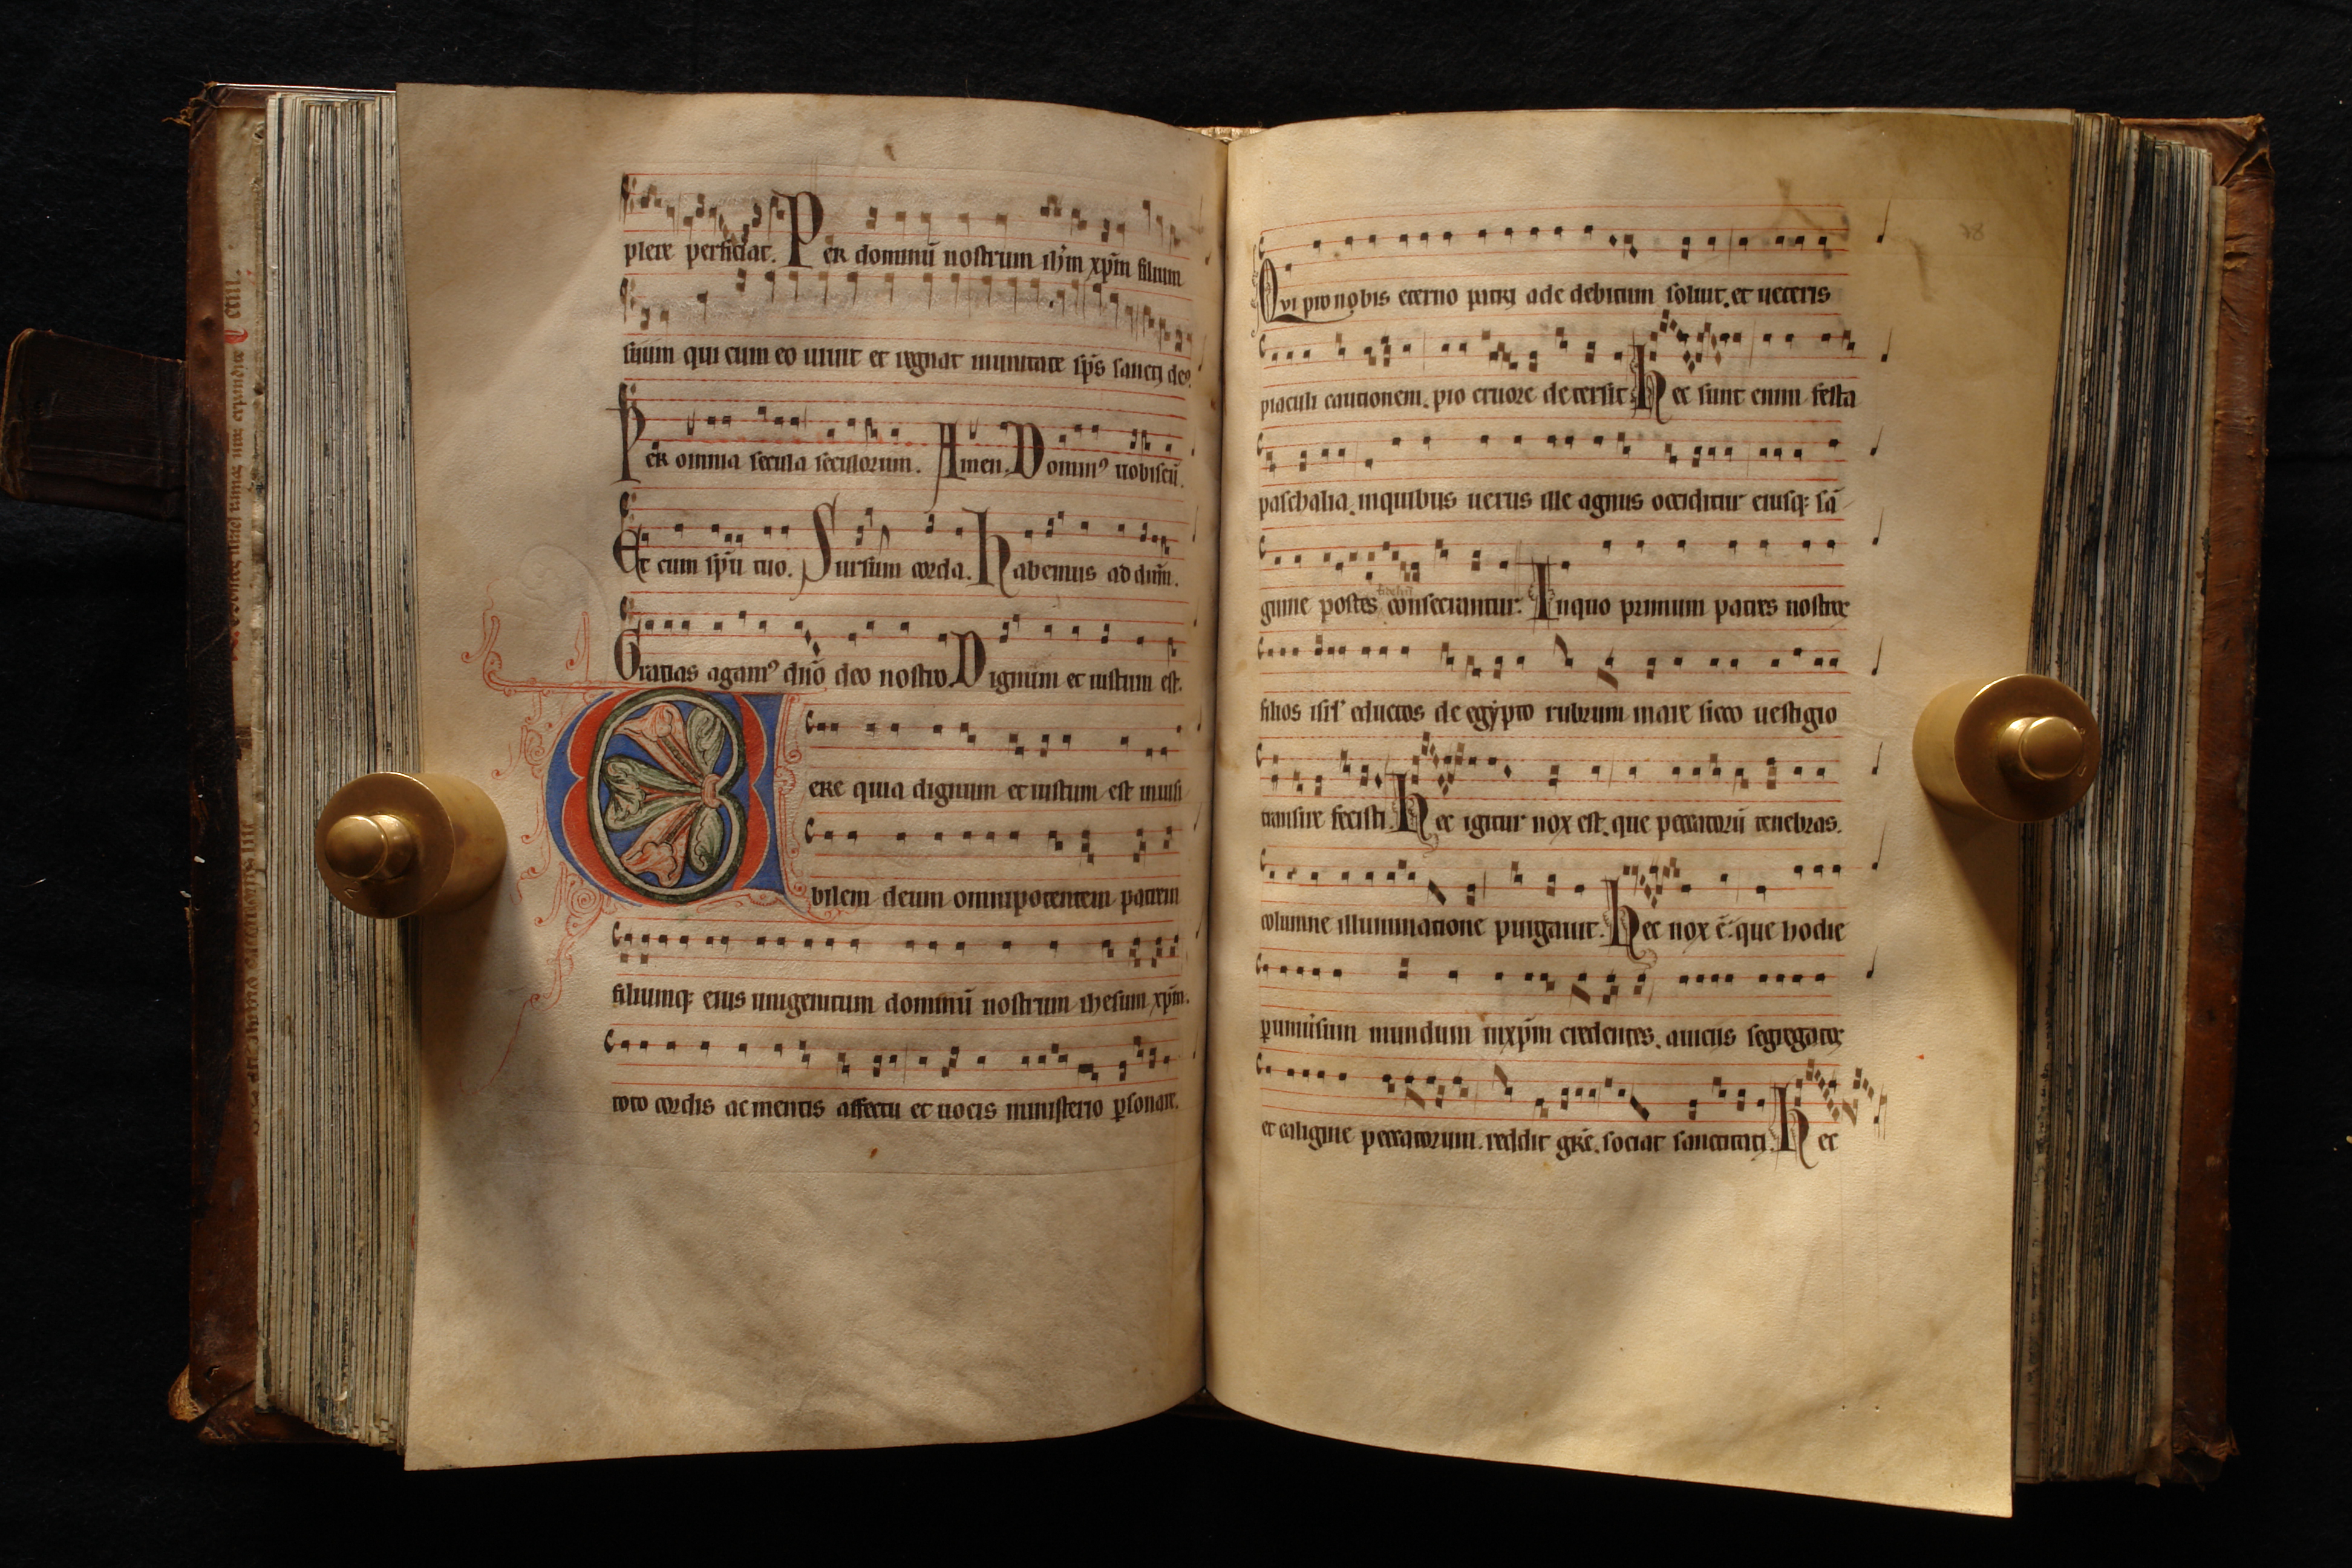 plere perficiat. Per dominū nostrum ihm̄ xp̄m filium
suum qui cum eo uiuit et regnat inunitate sp̄s sancti deꝰ.
Per omnia secula seculorum. Amen. Dominꝰ uobiscū.
Et cum sp̄u tuo. Sursum corda. Habemus ad dn̄m.
Gratias agamꝰ dn̄o deo nostro. Dignum et iustum est.
Vere quia dignum et iustum est inuisi
bilem deum omnipotentem patrem
filiumq; eius unigenitum dominū nostrum ihesum xp̄m.
toto cordis ac mentis affectu et uocis ministerio ꝑsonare.
Qui pro nobis eterno patri ade debitum soluit. et ueteris
piaculi cautionem. pio cruore detersit. Hec sunt enim festa
paschalia. inquibus uerus ille agnus occiditur eiusq; sā
guine postes consecrantur. Inquo primum patres nostros
filios isr̄l eductos de egypto rubrum mare sicco uestigio
transire fecisti. Hec igitur nox est. que peccatorū tenebras.
columne illuminatione purgauit. Hec nox ē. que hodie
ꝑuniuersum mundum inxp̄m credentes. auiciis segregatos
et caligine peccatorum. reddit grē. sociat sanctitati. Hec